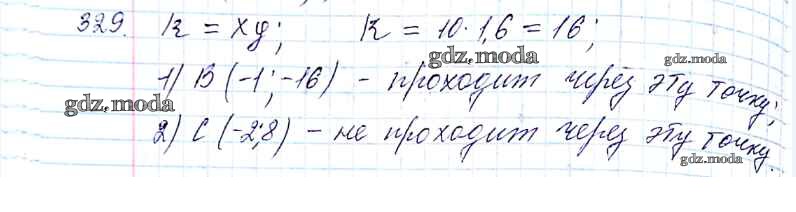 329. k = xy; k = 10·1,6 = 16;
gdz.moda
gdz.moda
1) B (-1; -16) - проходит через эту точку;
gdz.moda
2) C (-2; 8) - не проходит через эту точку.
gdz.moda